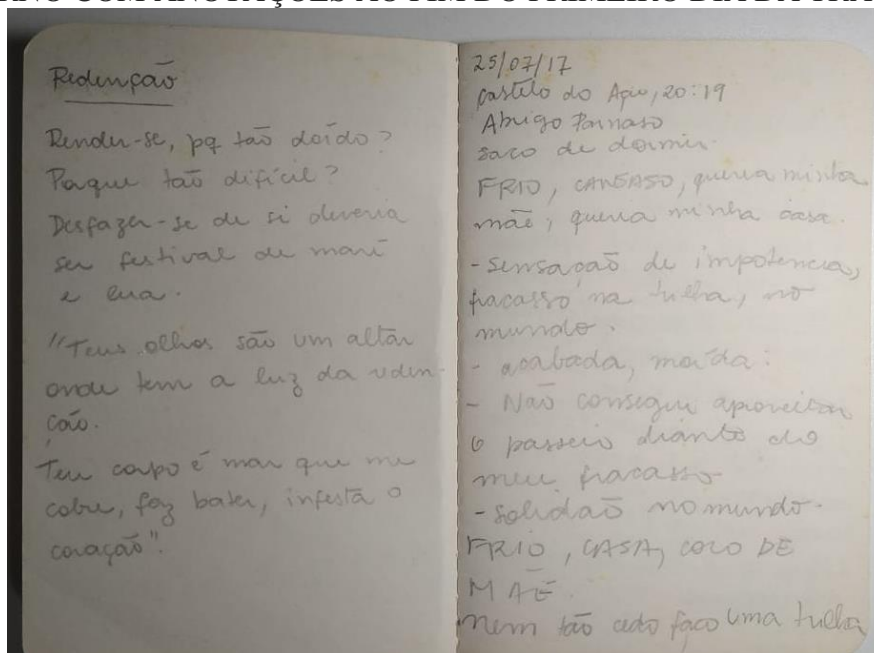 Redenção
Render-se, pq tão doído?
Porque tão difícil?
Desfazer-se de si deveria
ser festival de maré
e lua.
"Teus olhos são um altar
onde tem a luz da reden-
ção.
Teu corpo é mar que me
cobre, faz bater, infesta o
coração".
25/07/17
Castelo do Açu, 20:19
Abrigo Parnaso
saco de dormir
FRIO, CANSASO, queria minha
mãe, queria minha casa.
- Sensação de impotencia,
fracasso na trilha, no
mundo.
- acabada, moída.
- Não consegui aproveitar
o passeio diante do
meu fracasso
- Solidão no mundo.
FRIO, CASA, COLO DE
MÃE.
Nem tão cedo faço uma trilha